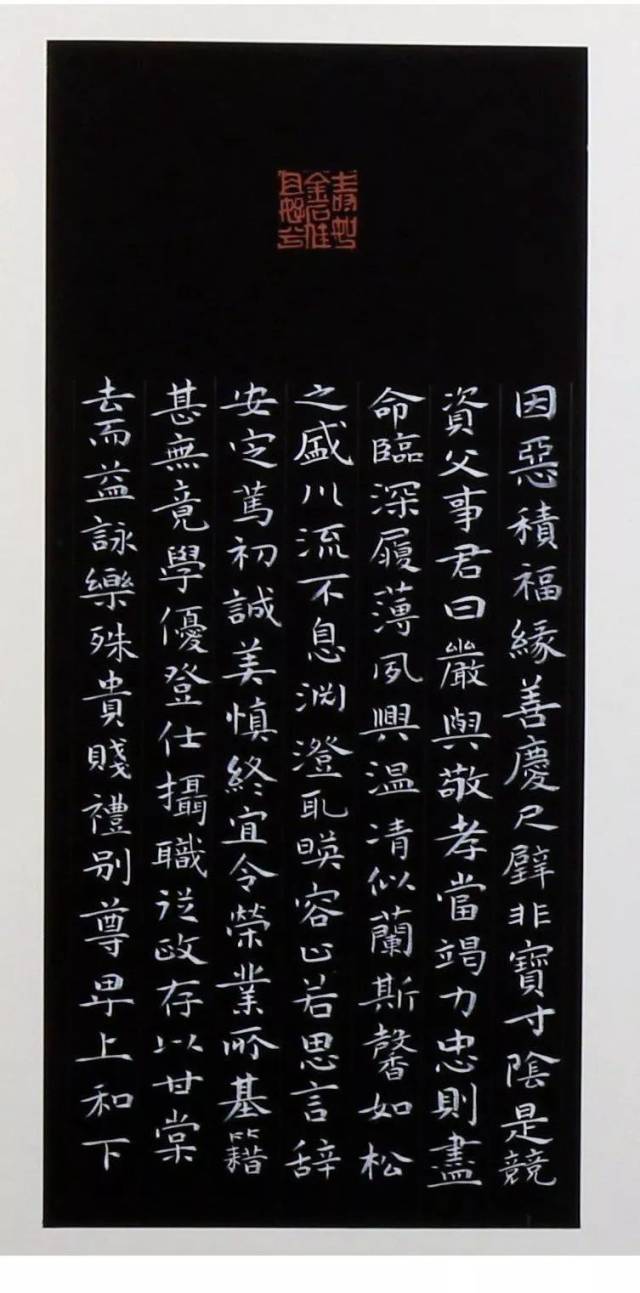 壽如金石佳且好兮
因惡積福緣善慶尺璧非寶寸陰是競
資父事君曰嚴與敬孝當竭力忠則盡
命臨深履薄夙興温凊似蘭斯馨如松
之盛川流不息渊澄取暎容止若思言辞
安定篤初誠美慎終宜令榮業所基籍
甚無竟學優登仕攝職従政存以甘棠
去而益詠樂殊貴賤禮别尊卑上和下